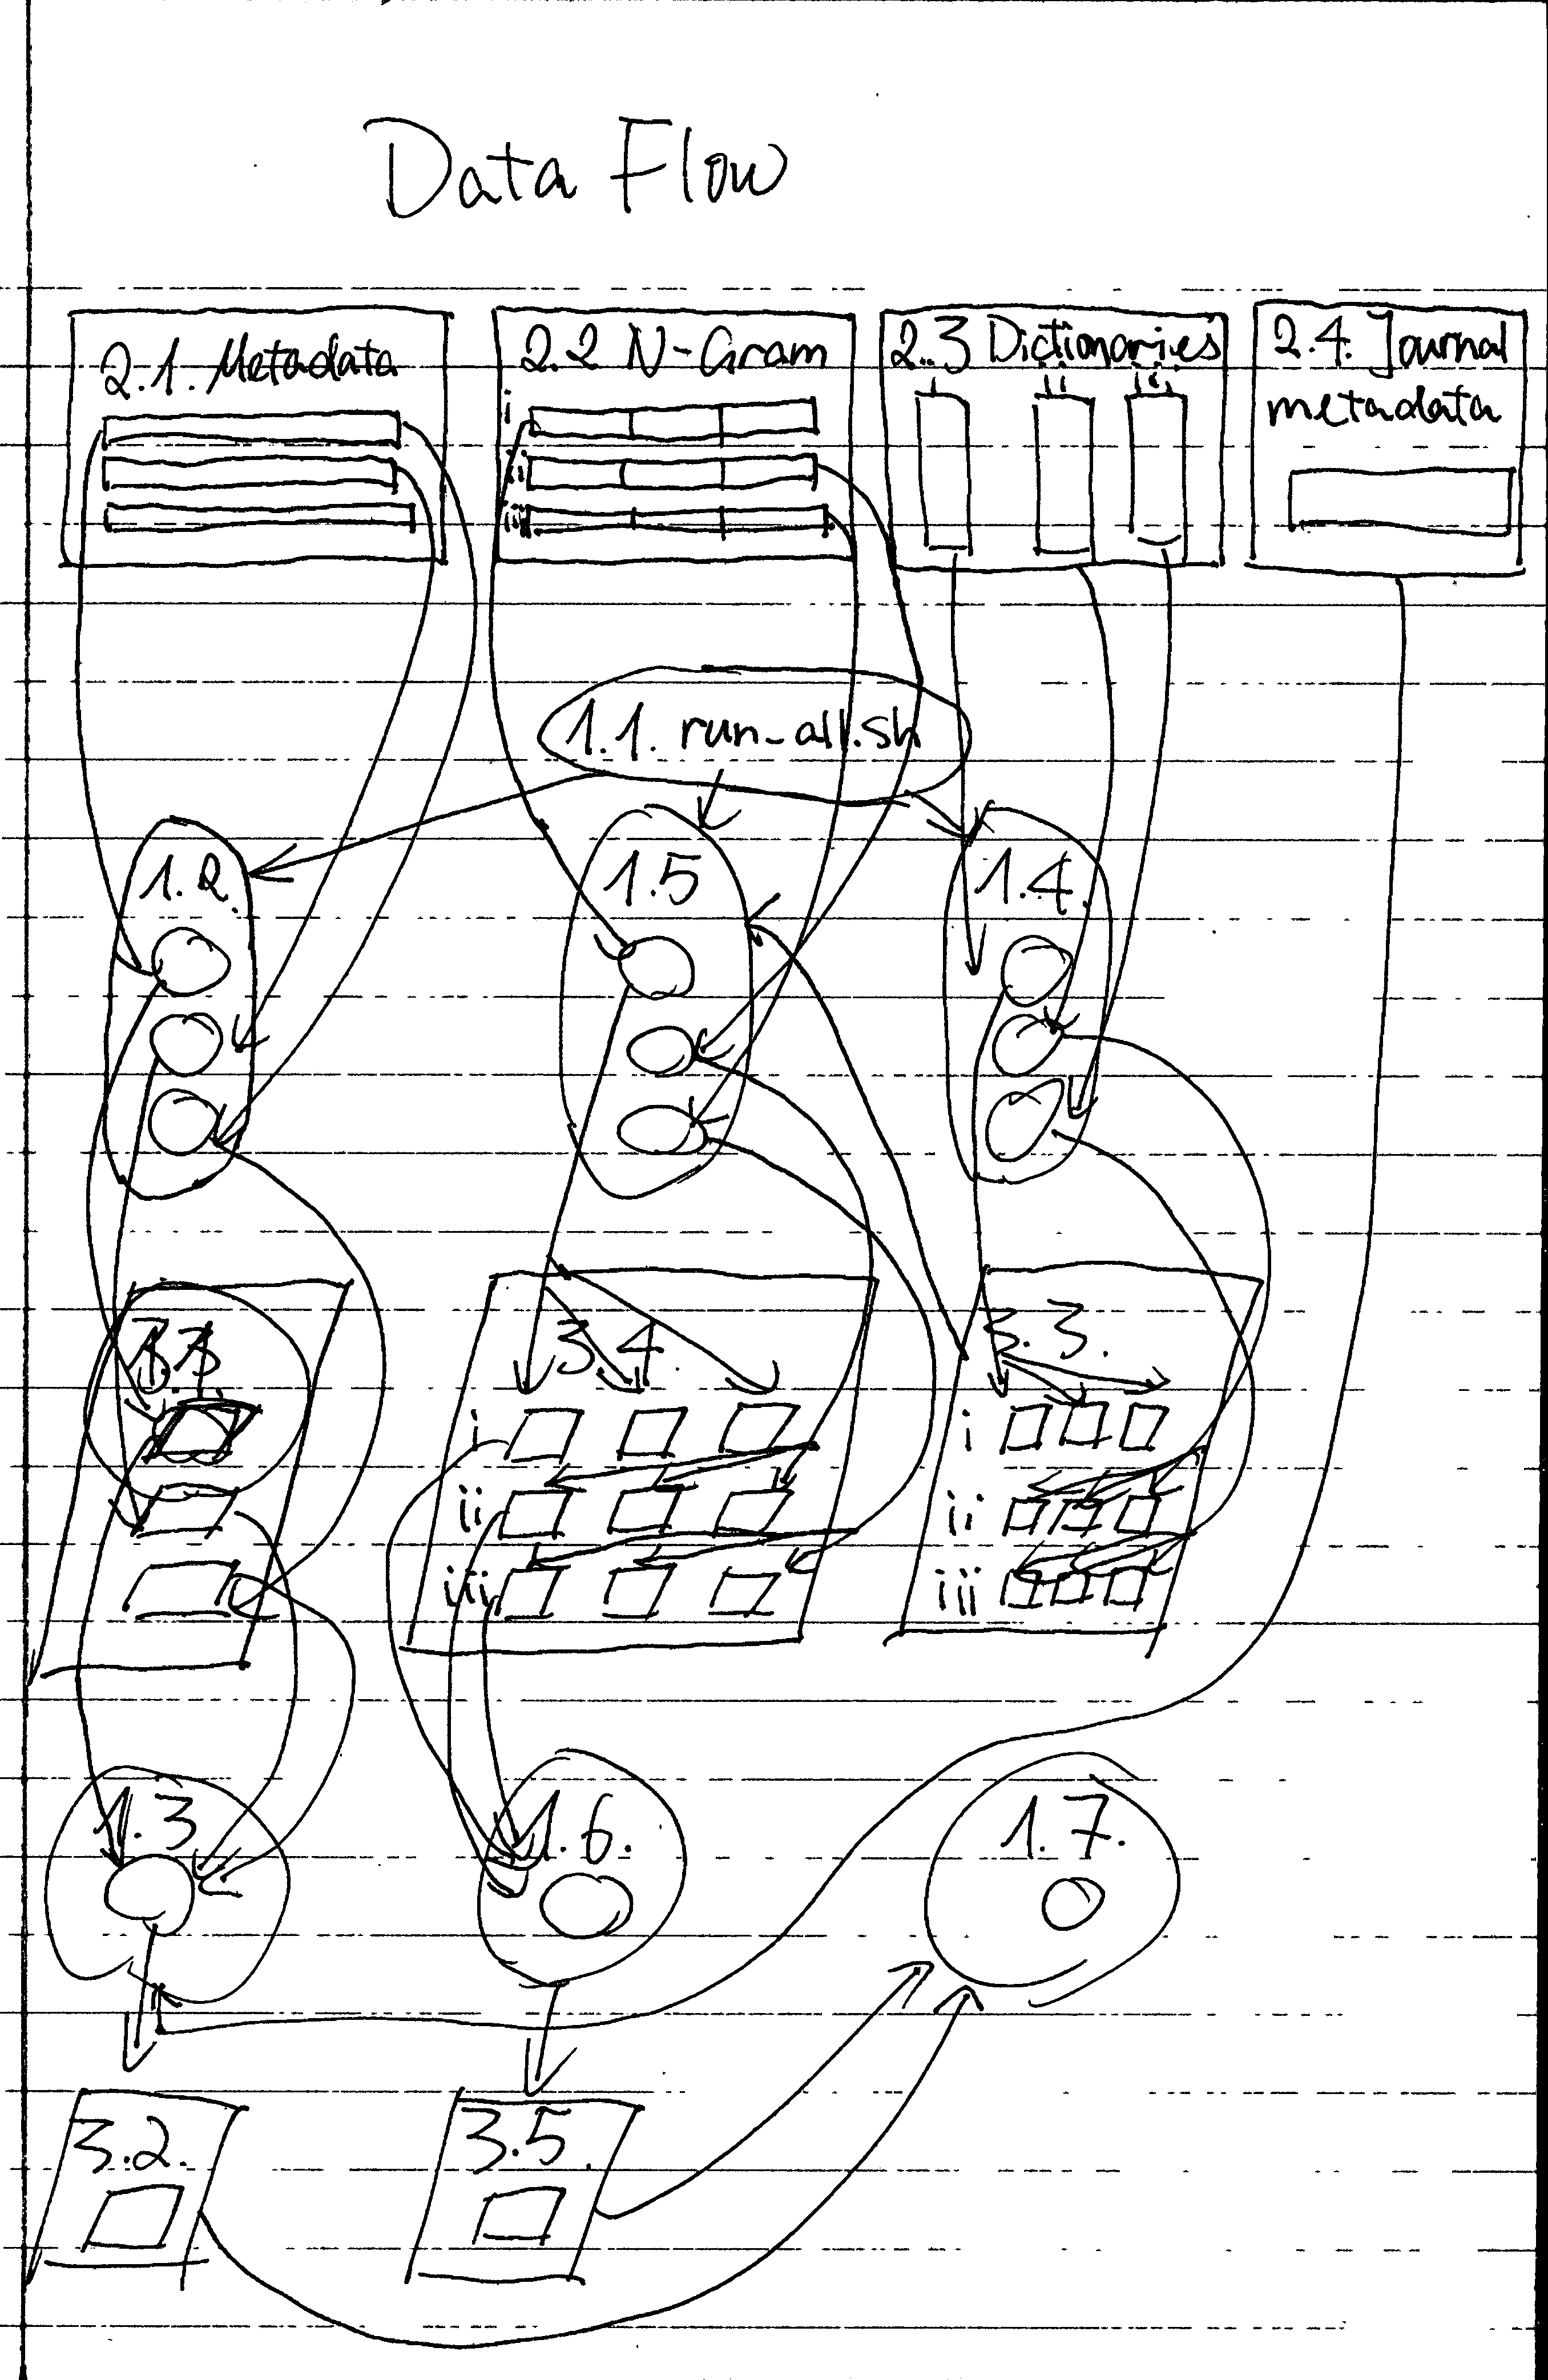 Data Flow
2.1. Metadata
2.2 N-Gram
i
ii
iii
2.3 Dictionaries
i
ii
iii
2.4. Journal
metadata
1.1. run-all.sh
1.2.
1.5
1.4.
3.4.
i
ii
iii
3.3.
i
ii
iii
1.3.
1.6.
1.7.
3.2.
3.5.